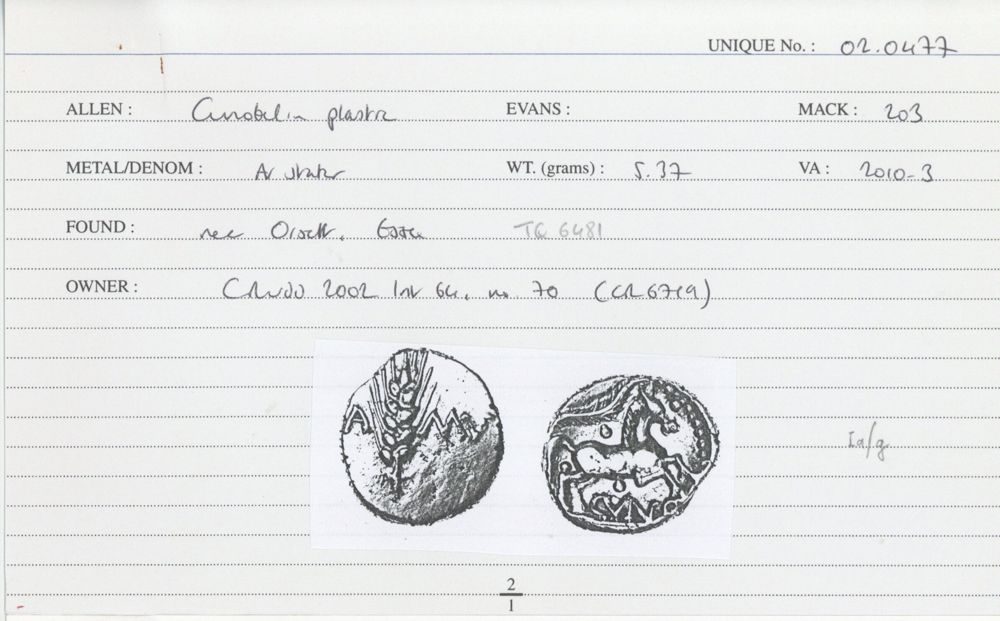 UNIQUE No. : 02.0477
ALLEN : Cunobelin plastic EVANS : MACK : 203
METAL/DENOM : AV stater WT. (grams) : 5.37 VA : 2010-3
FOUND : near Orsett, Essex TQ 6481
OWNER : 2002 Inv 64, no 70 (CR6719)
A M
CVNO
Ia/g
2
1